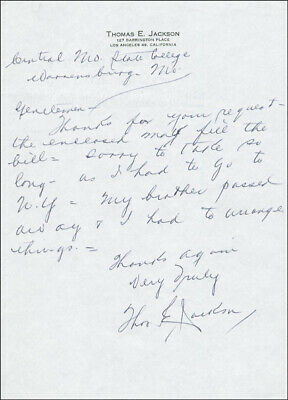 THOMAS E. JACKSON
127 BARRINGTON PLACE
LOS ANGELES 49, CALIFORNIA
Central Mo. State College
Warrensburg - Mo.
Gentlemen -
Thanks for your request -
the enclosed may fill the
bill = sorry to take so
long - as I had to go to
N.Y = My brother passed
away & I had to arrange
things. =
Thanks again
Very Truly
Thos E Jackson